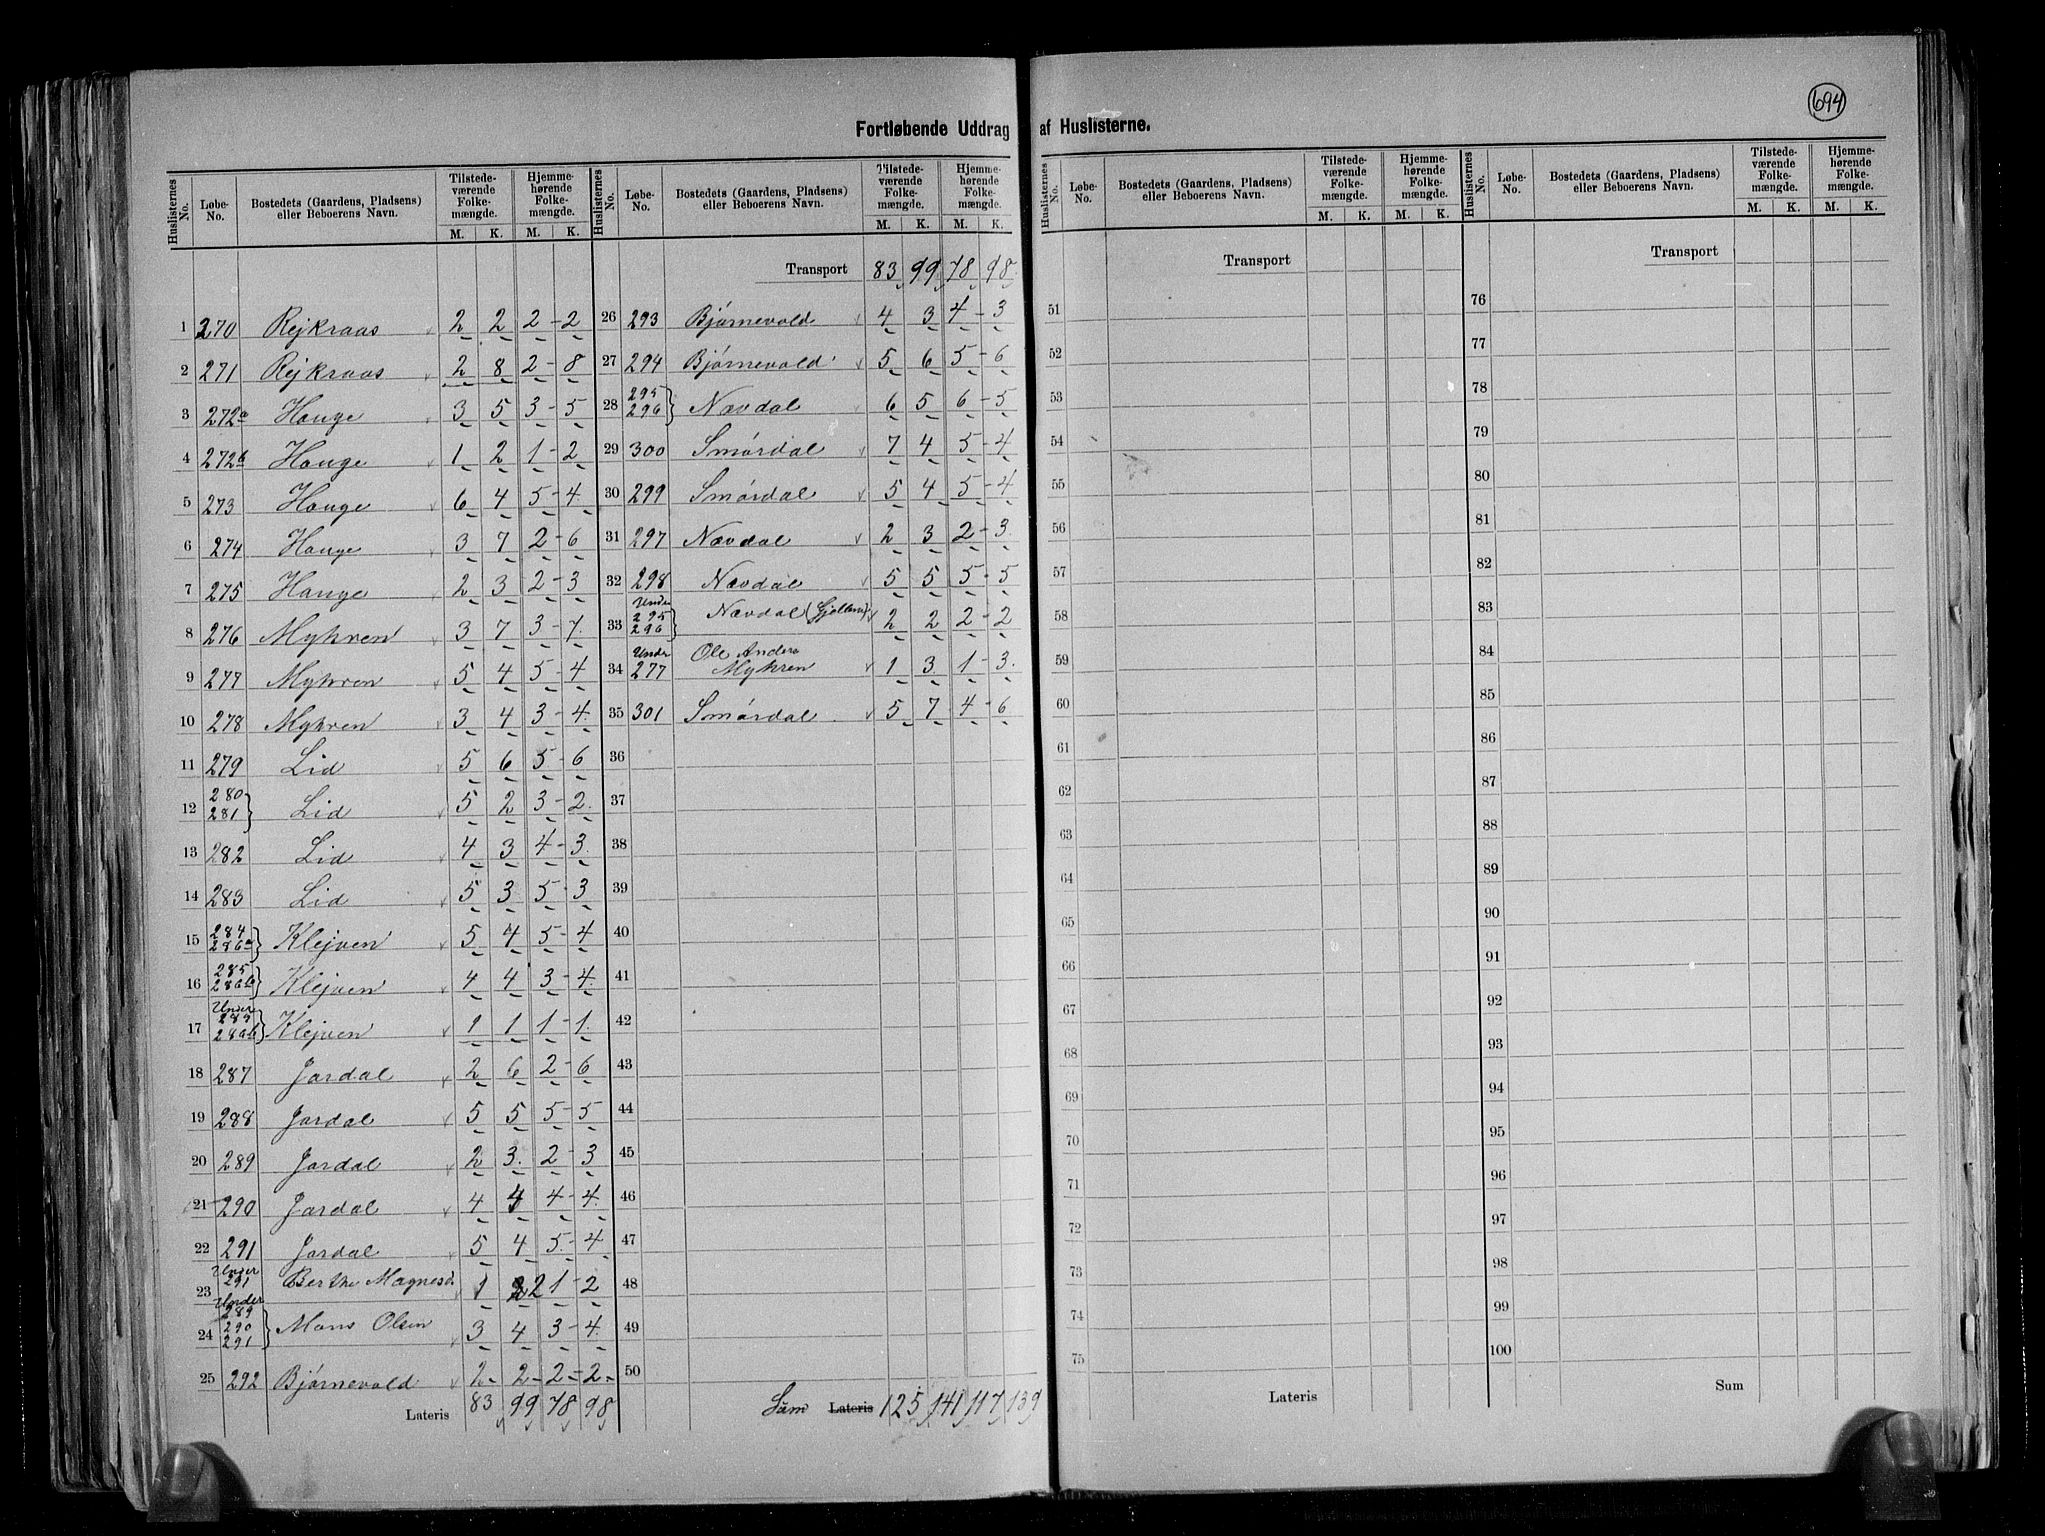 694
Fortløbende Uddrag af Huslisterne.
Huslisternes No. Løbe-No. Bostedets (Gaardens, Pladsens) eller Beboerens Navn. Tilstedeværende Folkemængde. M. K. Hjemmehørende Folkemængde. M. K.
1 270 Rejkraas 2 2 2 - 2
2 271 Rejkraas 2 8 2 - 8
3 272a Hauge 3 5 3 - 5
4 272b Hauge 1 2 1 - 2
5 273 Hauge 6 4 5 - 4
6 274 Hauge 3 7 2 - 6
7 275 Hauge 2 3 2 - 3
8 276 Myhren 3 7 3 - 7.
9 277 Myhren 5 4 5 - 4
10 278 Myhren 3 4 3 - 4.
11 279 Lid 5 6 5 - 6
12 280 281 } Lid 5 2 3 - 2.
13 282 Lid 4 3 4 - 3.
14 283 Lid 5 3 5 - 3
15 284 286a } Klejven 5 4 5 - 4
16 285 286b } Klejven 4 4 3 - 4.
17 Under 285 286b } Klejven 1 1 1 - 1.
18 287 Jordal 2 6 2 - 6
19 288 Jordal 5 5 5 - 5
20 289 Jordal 2 3. 2 - 3
21 290 Jordal 4 4 4 - 4.
22 291 Jordal 5 4 5. - 4
23 Under 291 Berthe Magnesd. 1 2 1 - 2
24 Under 289 290 291 } Mons Olsen 3 4 3 - 4.
25 292 Bjørnevold 2 - 2 - 2 - 2 -
Lateris 83 99 78 98
Huslisternes No. Løbe-No. Bostedets (Gaardens, Pladsens) eller Beboerens Navn. Tilstedeværende Folkemængde. M. K. Hjemmehørende Folkemængde. M. K.
Transport 83 99 78 98
26 293 Bjørnevold 4 3 4 - 3
27 294 Bjørnevold 5 6 5 - 6
28 295 296 } Nævdal 6 5 6 - 5
29 300 Smørdal 7 4 5 - 4
30 299 Smørdal 5 4 5 - 4
31 297 Nævdal 2 3 2 - 3.
32 298 Nævdal 5 5 5 - 5
33 Under 295 296 } Nævdal 2 2 2 - 2
34 Under 277 Ole Anders Myhren 1 3 1 - 3.
35 301 Smørdal 5 7 4 - 6
36
37
38
39
40
41
42
43
44
45
46
47
48
49
50
Sum Lateris 125 141 117 139
Huslisternes No. Løbe-No. Bostedets (Gaardens, Pladsens) eller Beboerens Navn. Tilstedeværende Folkemængde. M. K. Hjemmehørende Folkemængde. M. K.
Transport
51
52
53
54
55
56
57
58
59
60
61
62
63
64
65
66
67
68
69
70
71
72
73
74
75
Lateris
Huslisternes No. Løbe-No. Bostedets (Gaardens, Pladsens) eller Beboerens Navn. Tilstedeværende Folkemængde. M. K. Hjemmehørende Folkemængde. M. K.
Transport
76
77
78
79
80
81
82
83
84
85
86
87
88
89
90
91
92
93
94
95
96
97
98
99
100
Sum